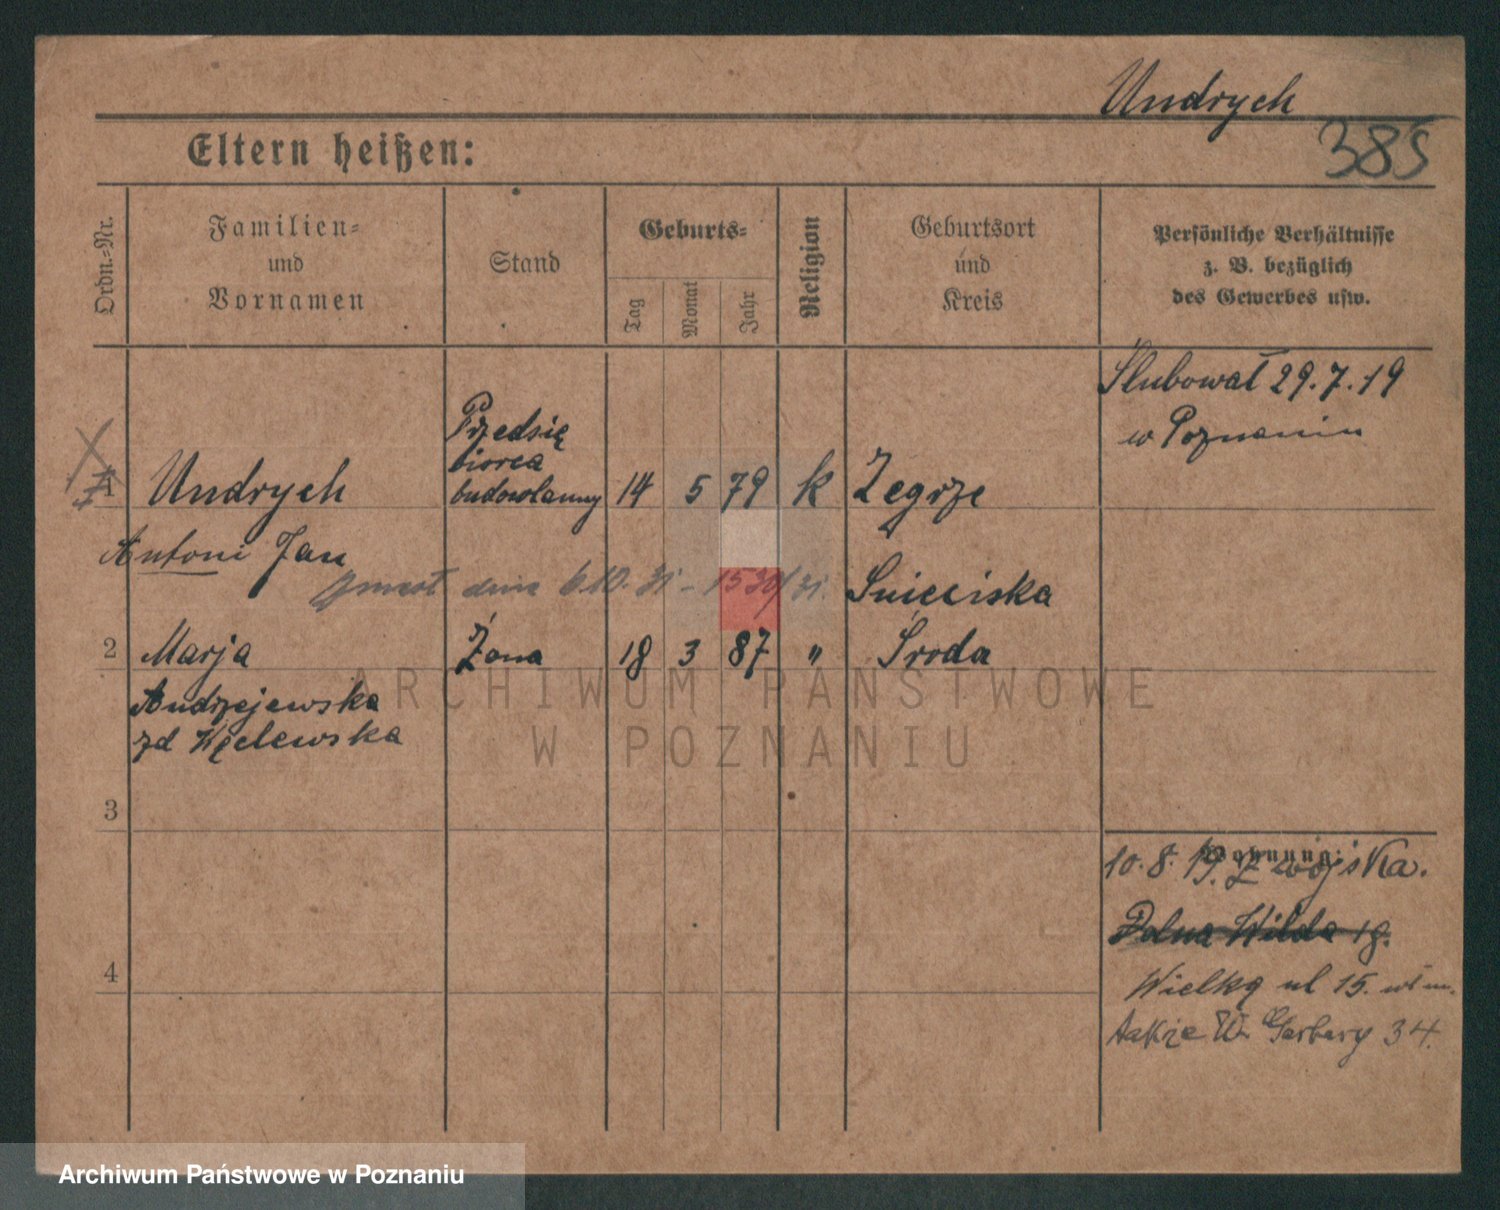 Undrych
385
Eltern heißen:
Ordn.-Nr.
Familien-
und
Vornamen
Stand
Geburts-
Tag
Monat
Jahr
Religion
Geburtsort
und
Kreis
Persönliche Verhältnisse
z. B. bezüglich
des Gewerbes usw.
Ślubował 29.7.19
w Poznaniu
1 Undrych
Przedsię
biorca
budowlanny
14 5 79 k Zegrze
Antoni Jan
zmarł dnia 6.10.31 - 1530/31.
Śnieciska
2 Marja Żona 18 3 87 " Środa
Andrzejewska
zd Węclewska
3
4
Wohnung:
10.8.19. Z wojska.
Dolna Wilda 18.
Wielka ul 15.
także W. Garbary 34.
ARCHIWUM PAŃSTWOWE
W POZNANIU
Archiwum Państwowe w Poznaniu